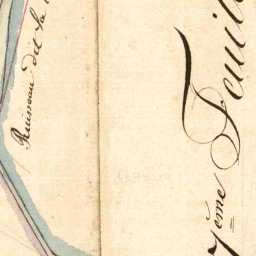 Ruisseau dit la
7ème Feuill